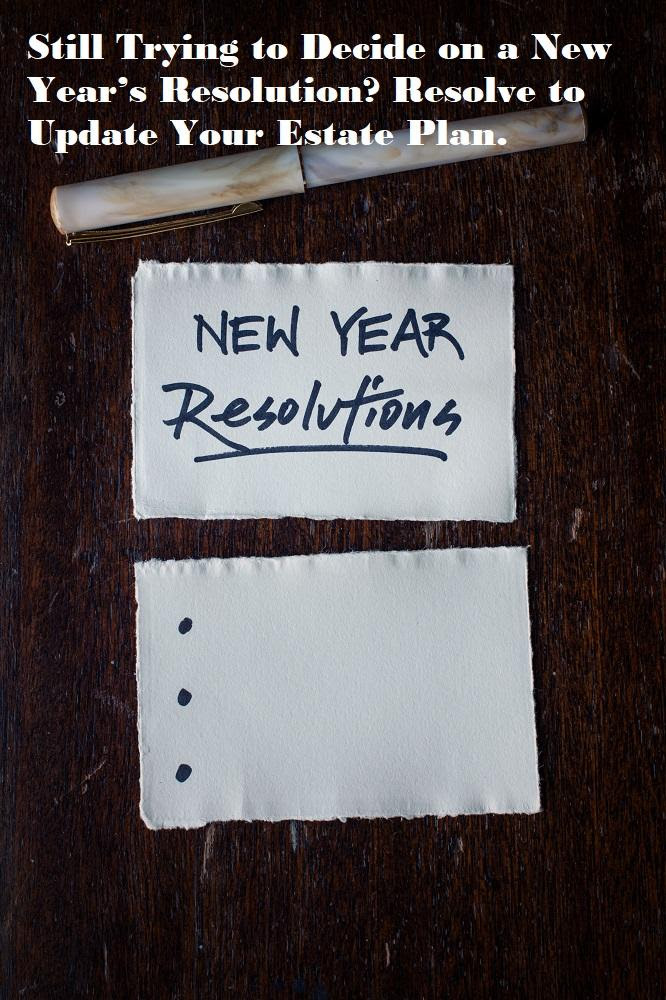 Still Trying to Decide on a New
Year’s Resolution? Resolve to
Update Your Estate Plan.
NEW YEAR
Resolutions
•
•
•